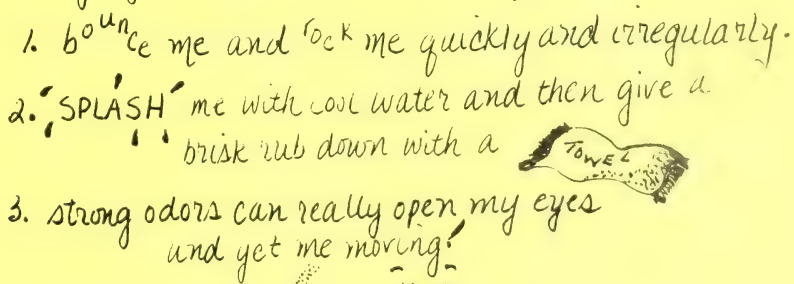 1. bounce me and rock me quickly and irregularly.
2. SPLASH me with cool water and then give a
brisk rub down with a TOWEL
3. strong odors can really open my eyes
and get me moving!